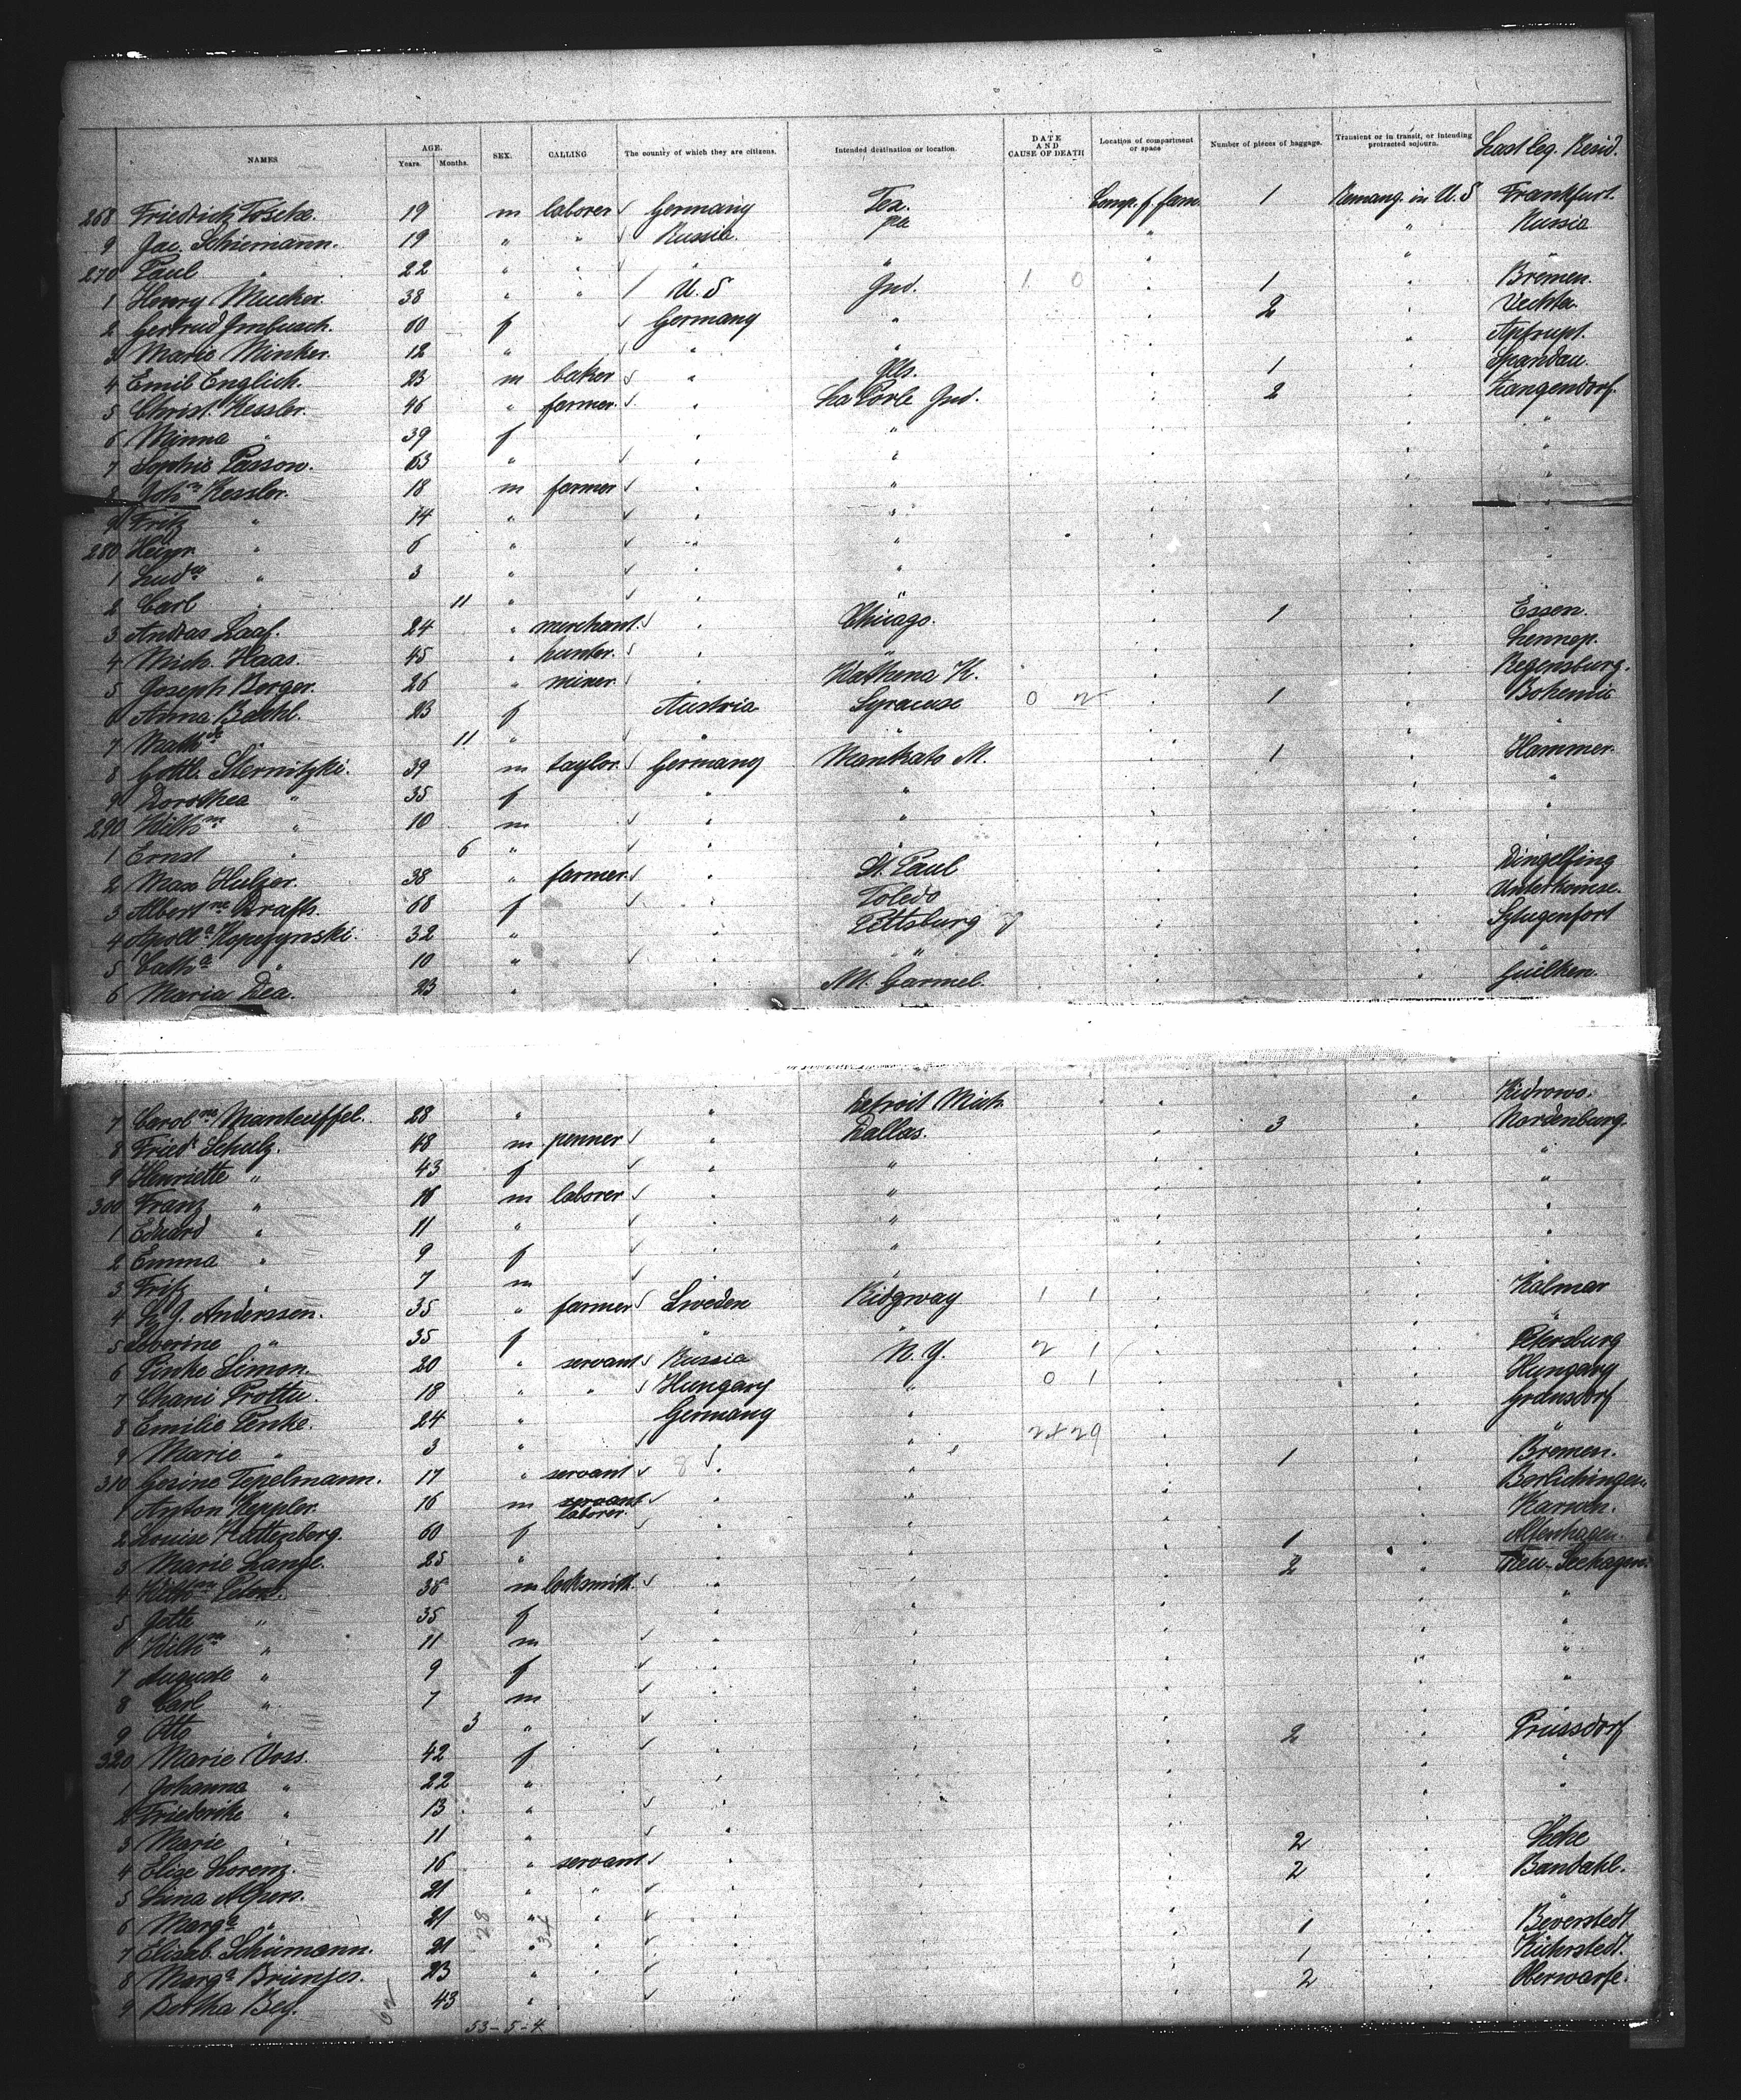 NAMES AGE. Years. Months. SEX. CALLING The country of which they are citizens. Intended destination or location. DATE AND CAUSE OF DEATH Location of compartment or space Number of pieces of baggage. Transient or in transit, or intending protracted sojourn. Last leg. Resid.
268 Friedrich Toscke. 19 m laborer Germany Tex. Comp. f. fam. 1 Remang. in U.S Frankfurt.
9 Jac. Schiemann. 19 " " Russia. " " Russia
270 Paul " 22 " " " " "
1 Henry Mucker 38 " " U.S Ind. 1 0 " 1 " Bremen.
2 Gertrud Imbusch. 60 f Germany " " 2 " Vechta.
3 Marie Minker. 12 " " " "
4 Emil Englich. 23 m baker " Ills. " 1 " Spandau
5 Christ. Kessler. 46 " farmer. " La Porte Ind. " 2 " Langendorf.
6 Minna " 39 f " " " " "
7 Sophie Passon. 63 " " " " " "
8 Joh.n Kessler. 18 m farmer " " " " "
9 Fritz " 14 " " " " " "
280 Heinr. " 6 " " " " " "
1 Lud. " 3 " " " " " "
2 Carl " 11 " " " " "
3 Andras Laaf. 24 " merchant. " Chicago. " 1 " Essen.
4 Mich. Haas. 45 " hunter. " " " " Lennep.
5 Joseph Berger. 26 " miner " Wathena K. " " Regensburg.
6 Anna Bachl. 23 f Austria Syracuse 0 2 " 1 " Bohemia
7 Math. " 11 " " " " " "
8 Gottl. Sternitzki. 39 m taylor. Germany Mankato M. " 1 " Hammer.
9 Dorothea " 35 f " " " " "
290 Wilh.m " 10 m " " " " "
1 Ernst " 6 " " " " "
2 Max Hulzer. 38 " farmer. " St. Paul " " Dingelfing
3 Albert.ne Krafts. 68 f " Toledo " "
4 Apoll.a Kopczynski. 32 " " Pettsburg " "
5 Cath.a " 10 " " " " " "
6 Maria Dea. 23 " " Mt. Garmel. " "
7 Carol.ne Manteuffel. 28 " " Detroit Mich. " " Kidrowo.
8 Fried. Schulz. 48 m penner " Dallas. " 3 " Nordenburg.
9 Henriette " 43 f " " " " "
300 Franz " 16 m laborer " " " " "
1 Eduard " 11 " " " " " "
2 Emma " 9 f " " " " "
3 Fritz " 7 m " " " " "
4 Anderssen. 35 " farmer Sweden Ridgway 1 1 " " Kalmar
5 Severine " 35 f " " " " "
6 Pinke Simon. 20 " servant Russia N.Y. 2 1 " " Petersburg
7 Chani Prottu. 18 " " Hungary " 0 1 " " Hungary
8 Emilie Penke. 24 " Germany " " " Gransdorf
9 Marie " 3 " " " 24 29 " " "
310 Gesine Tepelmann. 17 " servant 8 " " " 1 " Bremen.
1 Anton Keppler. 16 m servant laborer. " " " " Berlichingen.
2 Louise Kattenberg. 60 f " " " " Karwen.
3 Marie Lange. 25 " " " " 1 " Altenhagen.
4 38 m locksmith. " " " 2 " Neu-Seehagen.
5 Jette " 35 f " " " " "
6 Wilh.m " 11 m " " " " "
7 Auguste " 9 f " " " " "
8 Carl " 7 m " " " " "
9 Otto " 3 " " " " "
320 Marie Voss. 42 f " " " 2 " Prussdorf
1 Johanna " 22 " " " " " "
2 Friederike " 13 " " " " " "
3 Marie " 11 " " " " "
4 Elise Lorenz. 16 " servant " " " 2 "
5 Lina Alpers. 21 " " " " " 2 "
6 Marg.a " 21 " " " " " "
7 Elisab. Schümann. 21 " " " " " 1 " Beverstedt
8 Marg.a Brünjes. 23 " " " " " 1 " Kührstedt.
9 Bertha Bey. 43 " " " " 2 " Oberwarfe.
28 34
53-5-4